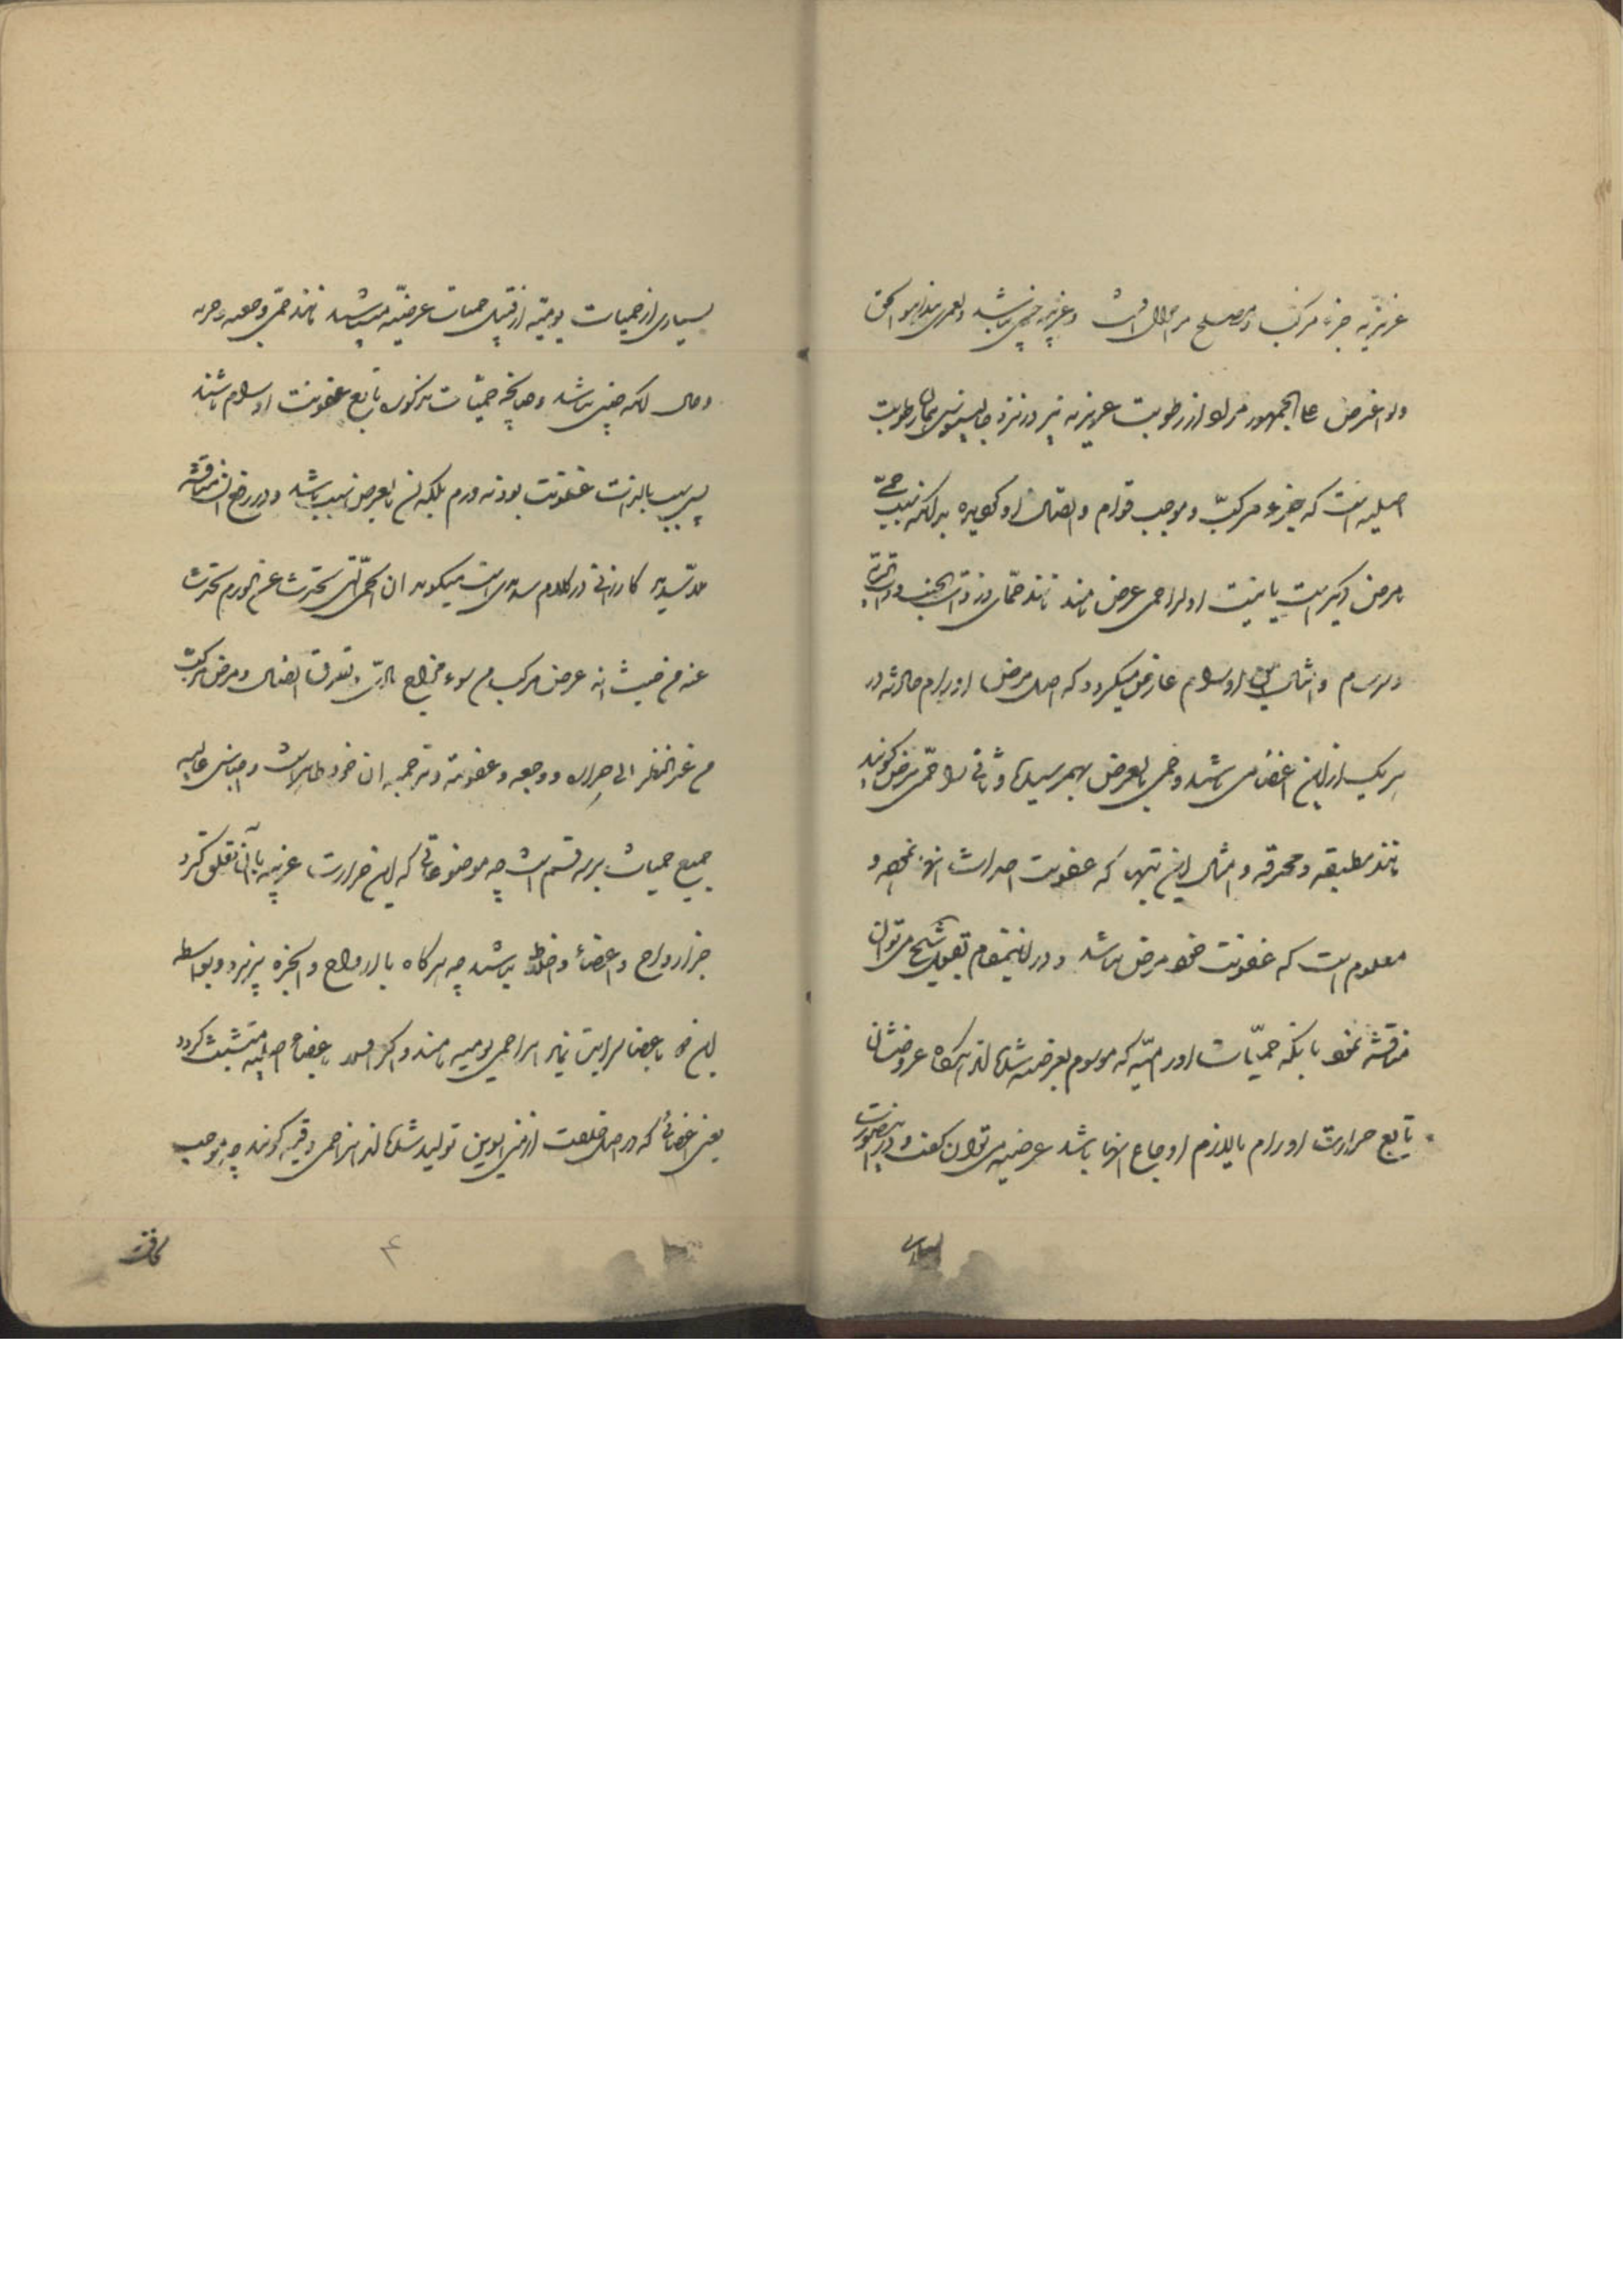 غریزیه جزء مرکب و مصلح مر حال است و غریبه چنین نباشد و لعمری هذا هو الحق
ولو اغمض عما الجمهور مراد از رطوبت غریزیه نیز در نزد جالینوس همان رطوبت
اصلیه است که جزء مرکب و موجب قوام و اتصال او گردیده بدانکه سبب حمی
مرض دیگر است یا نیست اول را حمی عرض نامند مانند حمای در ذات الجنب و ذات الریه
و سرسام و امثال این اورام عارض میگردد که اصل مرض اورام حادثه در
هر یک از این اعضا می باشد و حمی بالعرض بهم رسیده و ثانی را حمی مرض گویند
مانند مطبقه و محرقه و امثال این تبها که عفونت احداث انها نموده و
معلوم است که عفونت خود مرض نباشد و در این مقام بقول شیخ می توان
مناقشه نمود بانکه حمیات اورامیه که موسوم بعرضیه شده اند هرگاه عروضشان
تابع حرارت اورام یا لازم اوجاع انها باشد عرضیه می توان گفت و در این صورت
بسیاری
بسیاری از حمیات یومیه از قبیل حمیات عرضیه میباشد مانند حمی وجعیه و حریه
و حال انکه چنین نباشد و چنانچه حمیات مذکوره تابع عفونت اورام باشند
پس سبب بالذات عفونت بوده نه ورم بلکه ان بالعرض سبب باشد و در رفع این مناقشه
ملا سدید کازرانی در کلام سدیدی است میگوید ان الحمی التی تحدث عن الورم تحدث
عنه من حیث انه عرض مرکب من سوء مزاج مادی و تفرق اتصال و مرض مرکب
من غیر النظر الی حراره و وجعه و عفونته و ترجمه ان خود ظاهر است و اجناس عالیه
جمیع حمیات بر سه قسم است چه موضوعاتی که این حرارت غریبه بانها تعلق گیرد
جز ارواح و اعضاء و اخلاط نباشد چه هرگاه با ارواح و ابخره پذیرد و بواسطه
این خود باعضا سرایت نماید انرا حمی یومیه نامند و اگر اول باعضاء اصلیه متشبث گردد
یعنی اعضائی که در اصل خلقت از منی ابوین تولید شده اند انرا حمی دقیه گویند چه موجب
۴